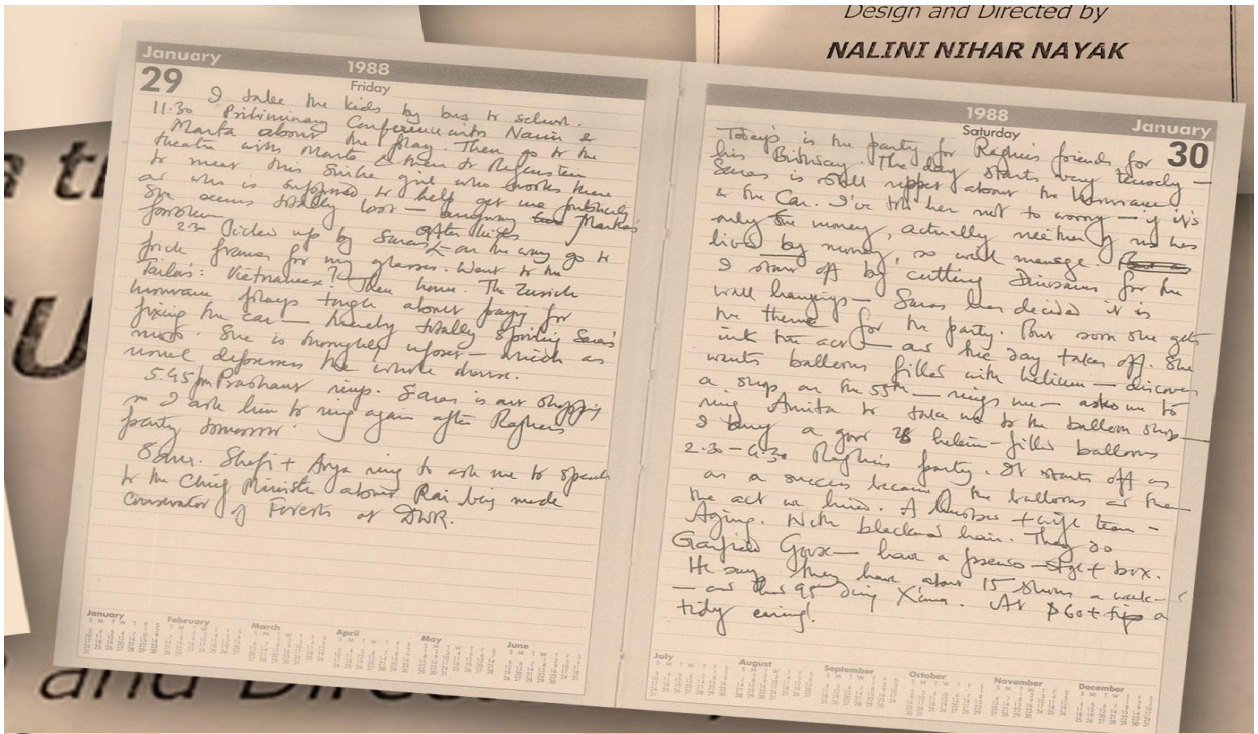 Design and Directed by
NALINI NIHAR NAYAK
January
1988
29
Friday
I take the kids by bus to school.
11.30 Preliminary Conference with Naim &
Marta about the play. Then go to the
theatre with Marta & then to
to meet this girl who works there
as who is supposed to help get me publicity
She seems totally lost — anyway Marta's
problem
2.30 Picked up by Saras — on the way go to
pick frames for my glasses. Went to the
Tailors: Vietnamese? Then home. The Zurich
Insurance plays tough about paying for
fixing the car — thereby totally spoiling Saras'
mood. She is thoroughly upset — which as
usual depresses the whole house.
5.45 pm Prashant rings. Saras is out shopping
so I ask him to ring again after Raghu's
party tomorrow.
Shafi + Arya ring to ask me to speak
to the Chief Minister about Rai being made
Conservator of Forests at DWR.
January
February
March
April
May
June
1988
January
Saturday
30
Today's is the party for Raghu's friends for
his Birthday. The day starts very tensely —
Saras is still upset about the Insurance
& the Car. I've told her not to worry — if it's
only the money, actually neither of us has
lived by money, so will manage.
I start off by cutting Dinosaurs for the
wall hangings — Saras has decided it is
the theme for the party. But soon she gets
into the act — as the day takes off. She
wants balloons filled with helium — discovers
a shop on the 55th — rings me — asks me to
ring Amita to take me to the balloon shop —
I buy a good 28 helium-filled balloons
2.30 – 4.30 Raghu's party. It starts off as
as a success because of the balloons as the
the act we hired. A husband + wife team –
Aging. With blackened hair. They do
Garfield Goose — have a stage + box.
He says they have about 15 shows a week —
— as thus 95 during X'mas. At $60 + tip a
tidy earning!
July
August
September
October
November
December